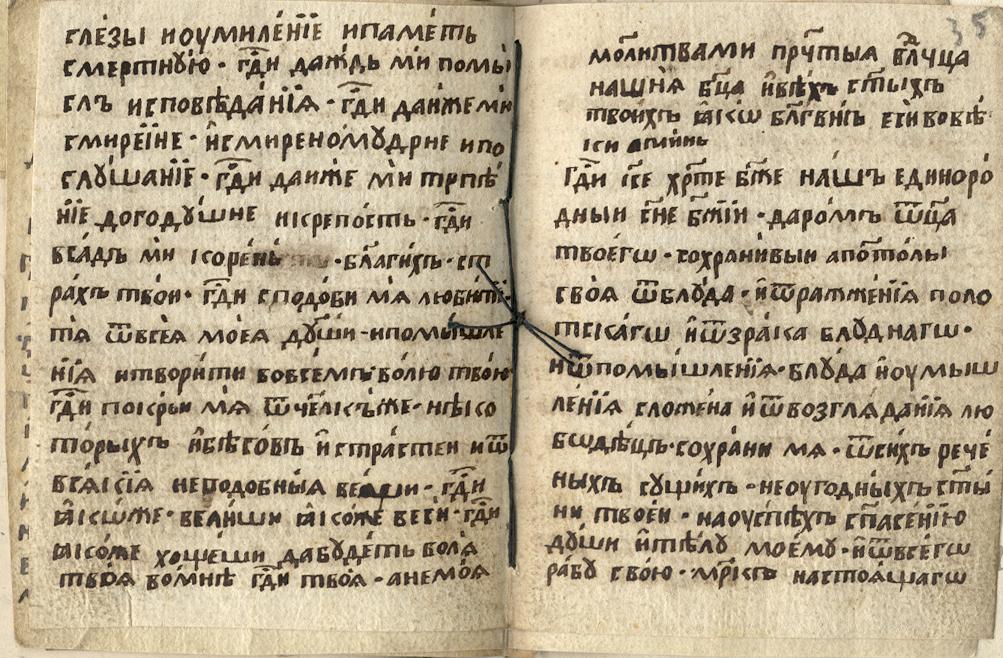 слезы и оумиленїе и паметь
смертнꙋю · гд҃и даждь ми помы
слъ исповѣданїѧ · гд҃и даиже ми
смиренїе · и смиреномꙋдрие и по
слꙋшанїе · гд҃и даиже ми терпѣ
нїе догодꙋшие и крепость · гд҃и
всадъ ми корень · благихъ · ст
рахъ твои · гд҃и сподоби мѧ любити
тѧ ѿ всеѧ моеѧ дꙋши · и помышле
нїѧ и творити во всемъ волю твою
гд҃и покрыи мѧ ѿ чл҃къ же · нѣко
торыхъ и бѣсовъ и страстеи и ѿ
всѧкїѧ неподобныѧ вещи · гд҃и
ꙗкѡже · велиши ꙗкоже веси · гд҃и
ꙗкоже хощеши да бꙋдеть волѧ
твоѧ во мнѣ гд҃и твоѧ · а не моѧ
35
молитвами прч҃тыѧ вл҃чца
нашиѧ бц҃а и всѣхъ ст҃ыхъ
твоихъ ꙗкѡ блг҃внъ еси во вѣ
ки аминь
Гд҃и іс҃е хр҃те бж҃е нашъ единоро
дныи сн҃е бж҃їи · даромъ ѿц҃а
твоегѡ · сохранивыи апо҃толы
своѧ ѿ блꙋда · и ѿ ражженїѧ поло
тскагѡ и ѿ зрака блꙋднагѡ ·
и ѿ помышленїѧ · блꙋда и оумыш
ленїѧ сложена и ѿ возглѧданїѧ лю
бѡдѣщъ · сохрани мѧ · ѿ сихъ рече
ныхъ сꙋщихъ · неоугодныхъ ст҃ы
ни твоеи · на оуспѣхъ сп҃асенїю
дꙋши и тѣлꙋ моемꙋ · и ѿ всегѡ
рабꙋ свою · мр҃къ настоѧщагѡ